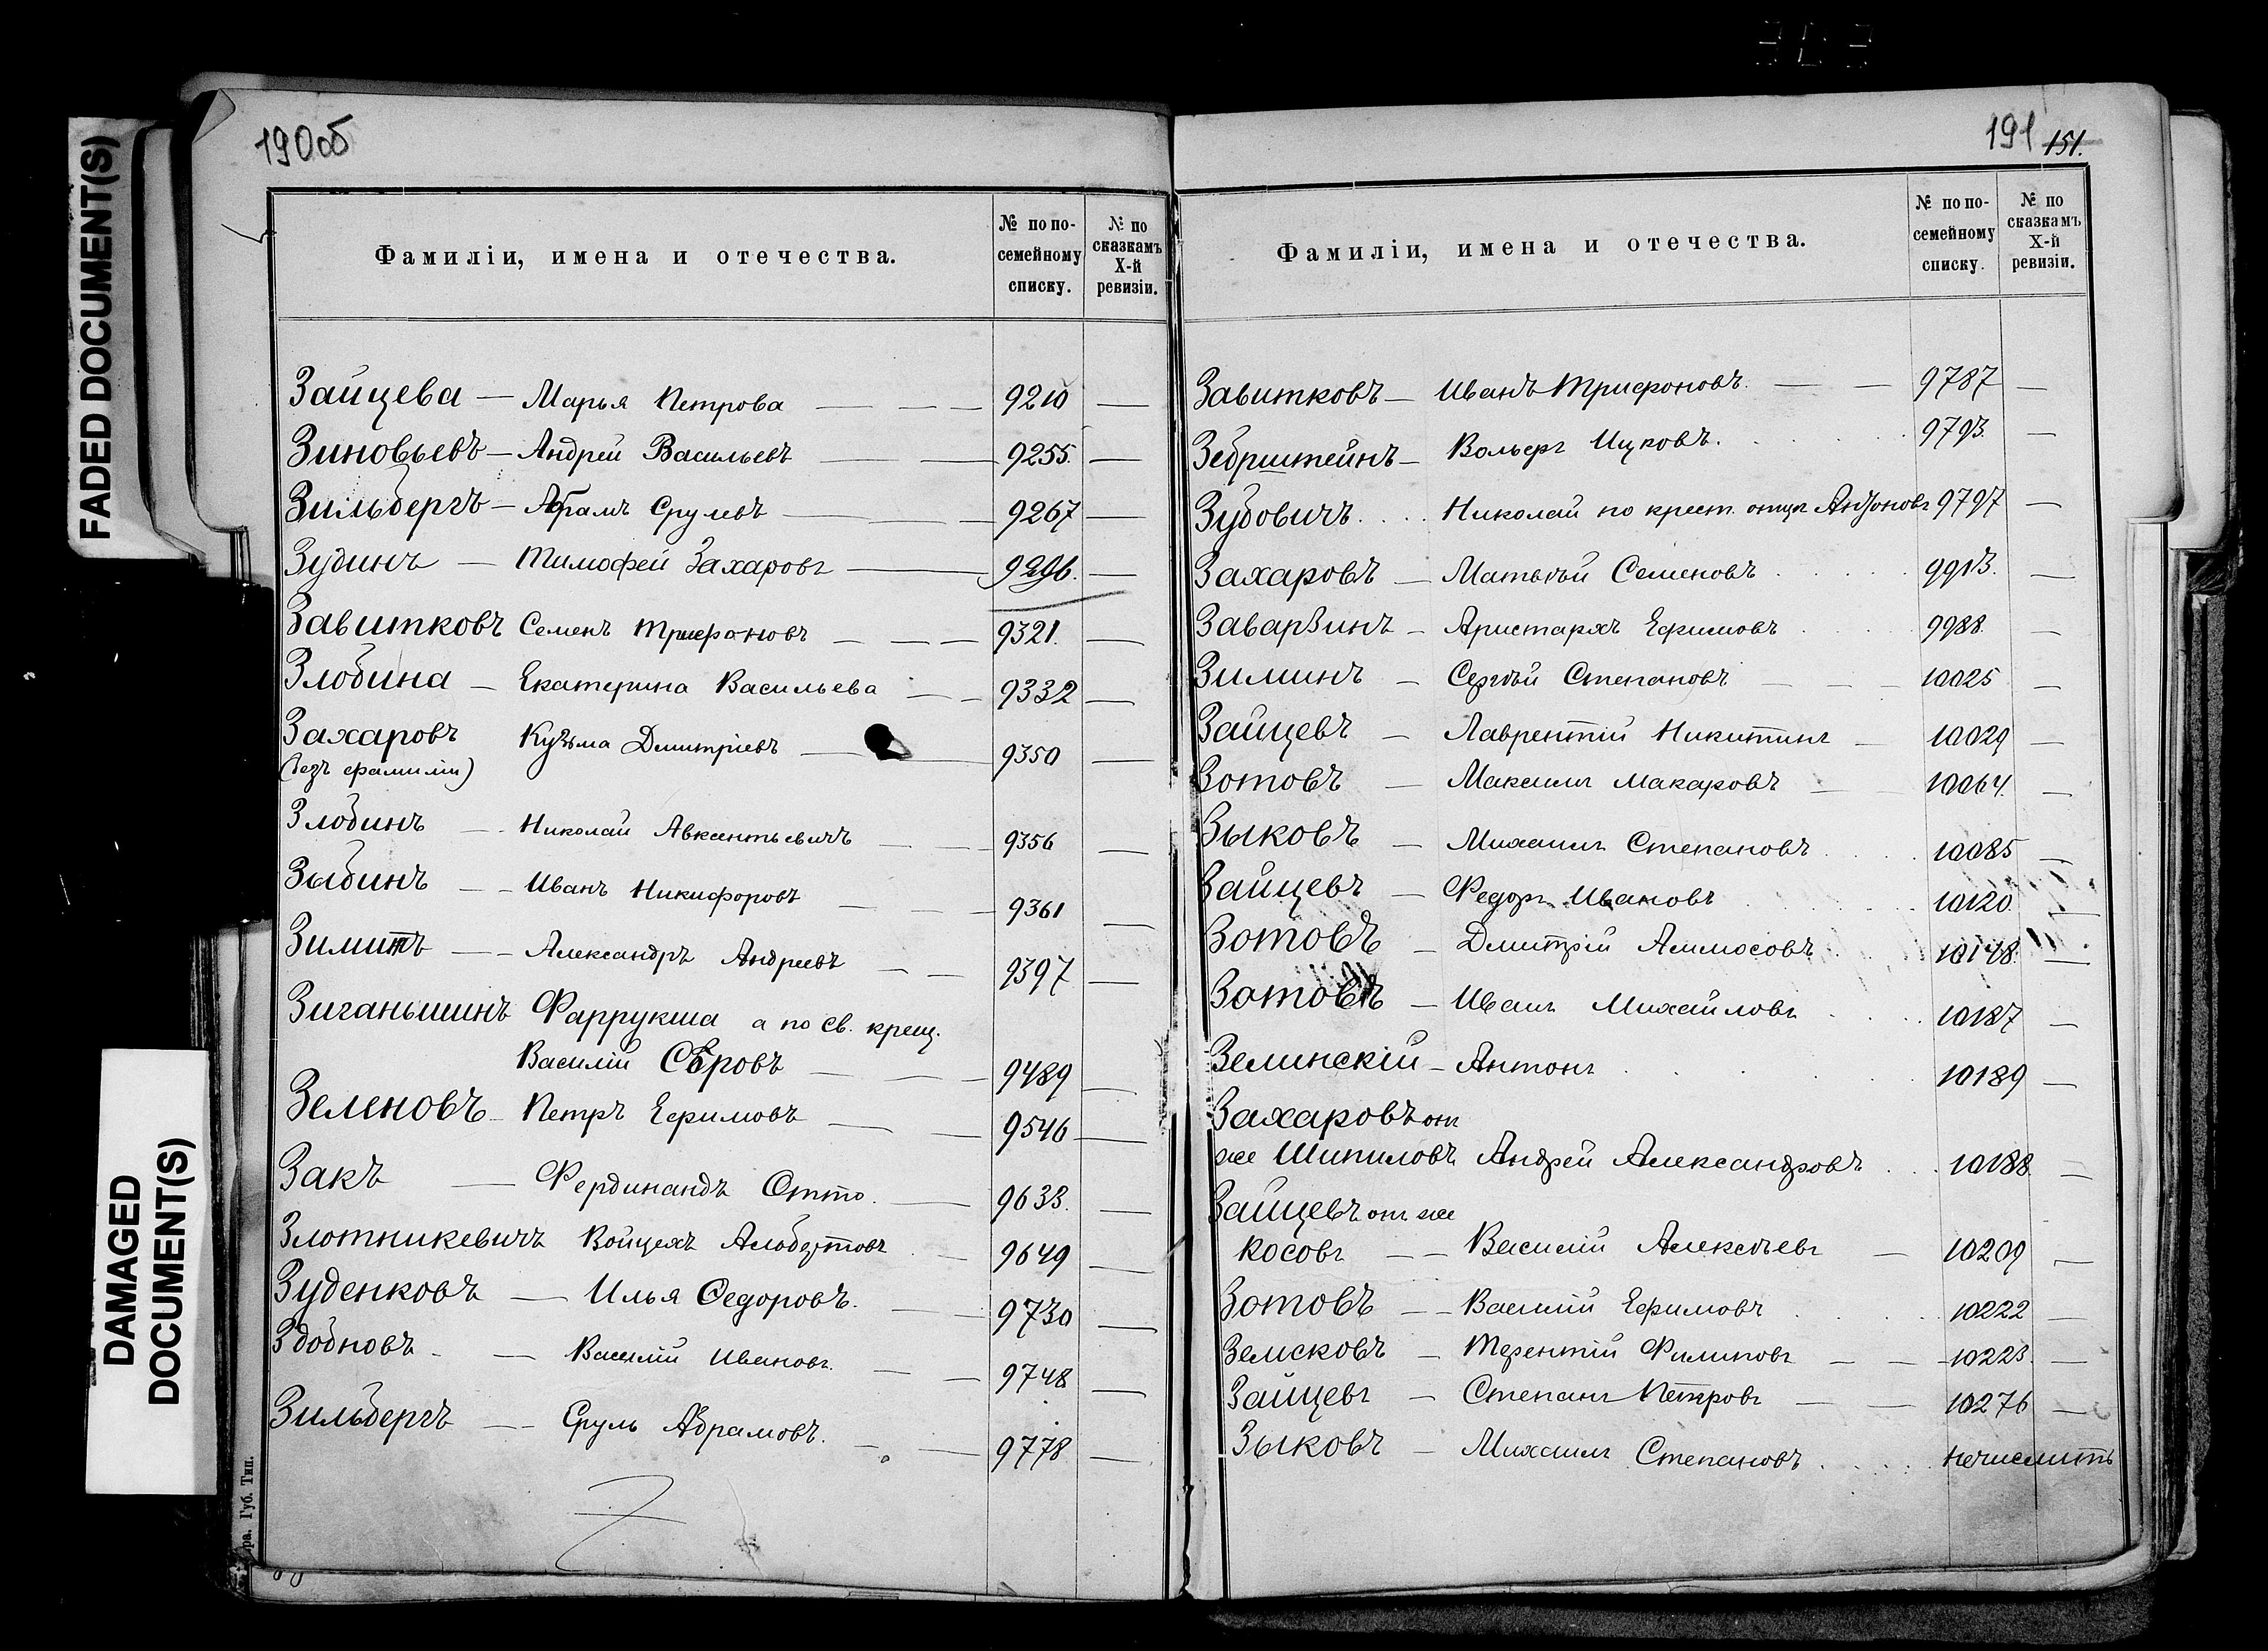 FADED DOCUMENT(S)
DAMAGED
DOCUMENT(S)
190об
Фамиліи, имена и отечества.
№ по по-
семейному
списку.
№ по
сказкамъ
X-й
ревизіи.
Зайцева — Марья Петрова — — — 9210 —
Зиновьевъ — Андрей Васильевъ — — 9255. —
Зильбергъ — Абрамъ Срулевъ — — — 9267 —
Зудинъ — Тимофей Захаровъ — 9296. —
Завитковъ Семенъ Трифоновъ — — — 9321. —
Злобина — Екатерина Васильева — — 9332 —
Захаровъ Кузьма Дмитріевъ — — 9350 —
(безъ фамиліи)
Злобинъ — Николай Авксентьевичъ — — — 9356 —
Зыбинъ — — Иванъ Никифоровъ — — — 9361 —
Зиминъ — — Александръ Андреевъ — — 9397 —
Зиганьшинъ Фаррукша а по св. крещ.
Василій Сѣровъ — — — 9489 —
Зеленовъ — Петръ Ефимовъ — — 9546 —
Закъ — Фердинандъ Отто. — 9633. —
Злотникевичъ Войцехъ Альбертовъ — 9649 —
Зуденковъ — Илья Федоровъ. — — 9730 —
Здобновъ — Василій Ивановъ. — — 9748 —
Зильбергъ — — Сруль Абрамовъ. — — 9778 —
ра. Губ. Тип.
191 151.
Фамиліи, имена и отечества.
№ по по-
семейному
списку.
№ по
сказкамъ
X-й
ревизіи.
Завитковъ — Иванъ Трифоновъ. — — 9787 —
Зебрштейнъ — Вольфъ Ицковъ. 9793. —
Зубовичъ. Николай по крест. отцу Антоновъ 9797 —
Захаровъ — Матвѣй Семеновъ 9913. —
Заварзинъ — Аристархъ Ефимовъ 9988. —
Зиминъ — Сергѣй Степановъ — — — 10025 —
Зайцевъ — Лаврентій Никитинъ — 10029 —
Зотовъ — Максимъ Макаровъ — — 10064. —
Зыковъ — Михаилъ Степановъ 10085 —
Зайцевъ — Федоръ Ивановъ 10120. —
Зотовъ — Дмитрій Аммосовъ 10148. —
Зотовъ — Иванъ Михайловъ 10187 —
Зелинскій — Антонъ 10189 —
Захаровъ онъ
же Шипиловъ Андрей Александровъ 10188. —
Зайцевъ онъ же
Косовъ — — Василій Алексѣевъ — 10209 —
Зотовъ — — Василій Ефимовъ 10222 —
Земсковъ — Терентій Филиповъ — — 10223. —
Зайцевъ — Степанъ Петровъ — — 10276 —
Зыковъ — Михаилъ Степановъ